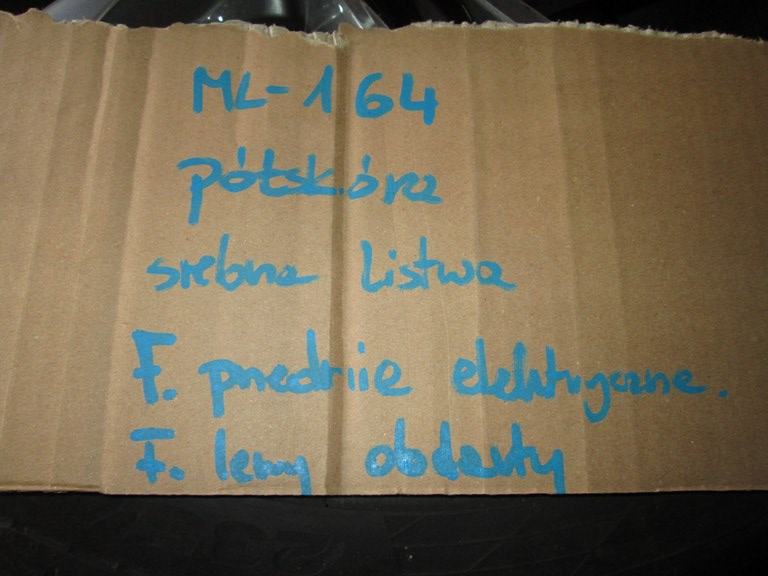 ML-164
półskóra
srebna listwa
F. przednie elektryczne.
F. lewy obdarty